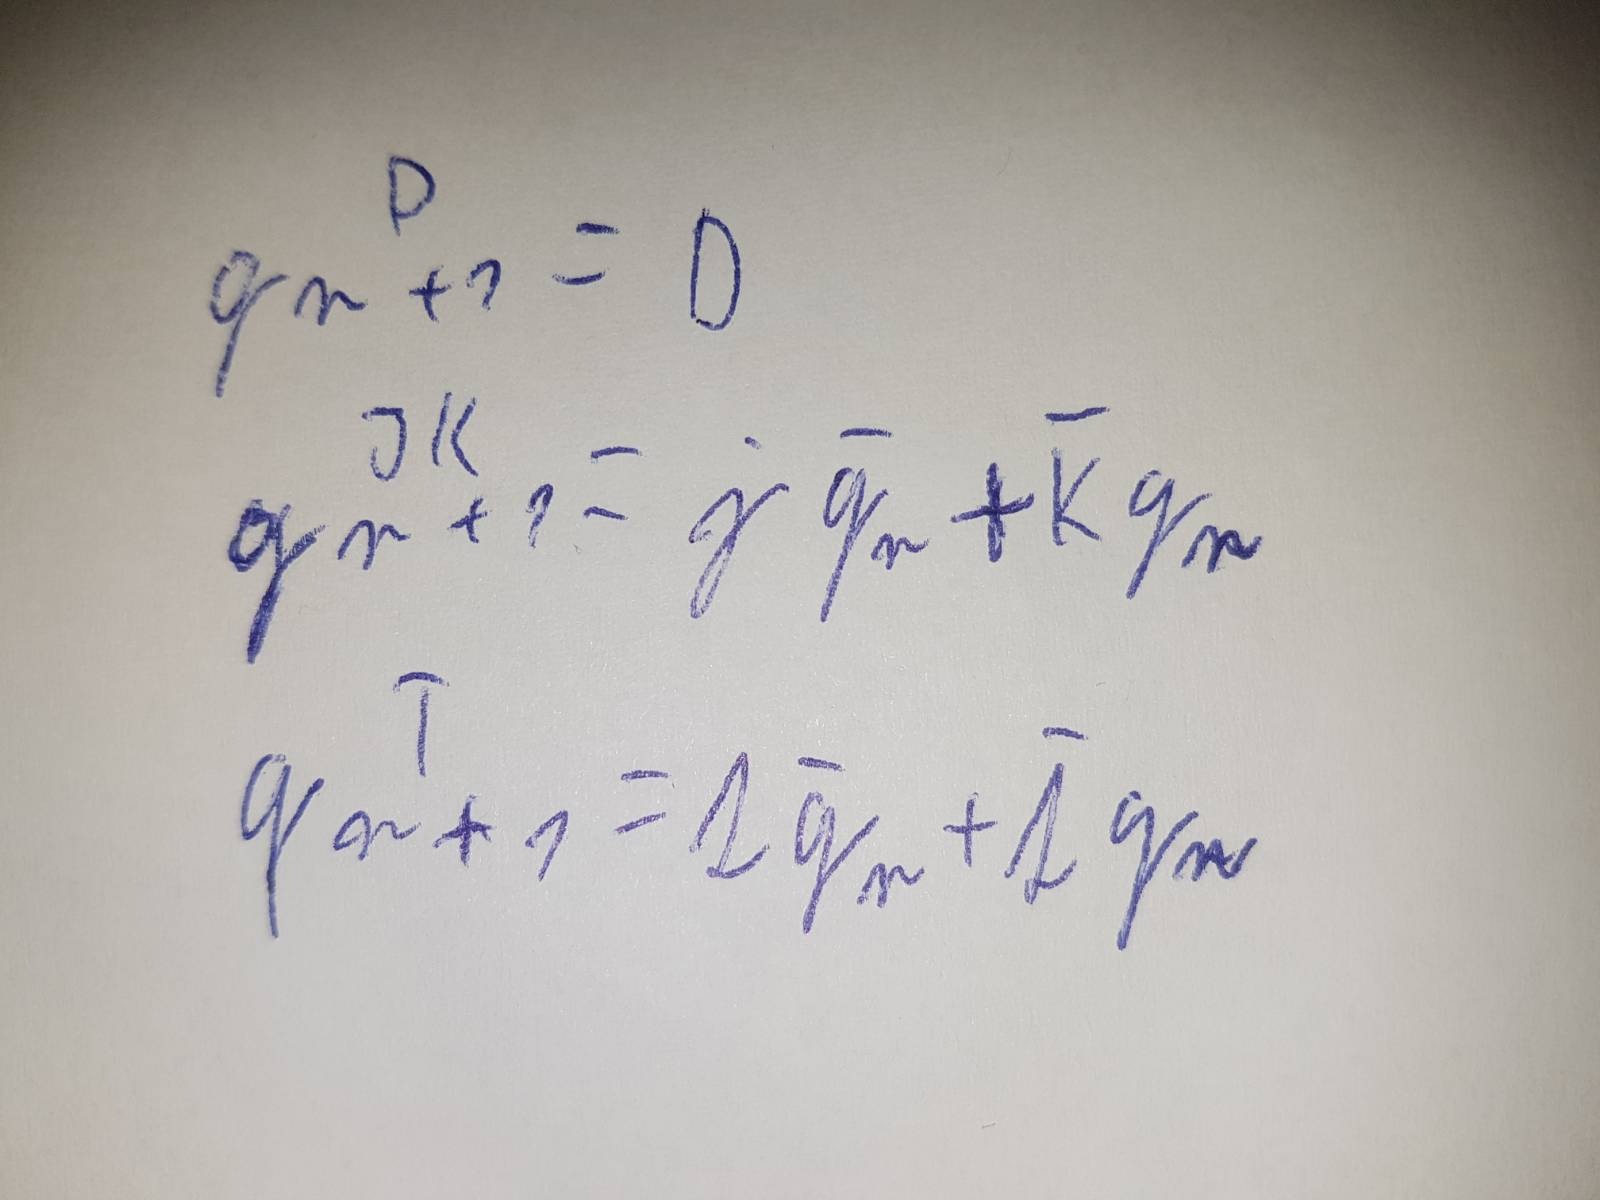 qₙ₊₁ᴰ = D
qₙ₊₁ᴶᴷ = j q̄ₙ + K̄ qₙ
qₙ₊₁ᵀ = 1 q̄ₙ + 1̄ qₙ